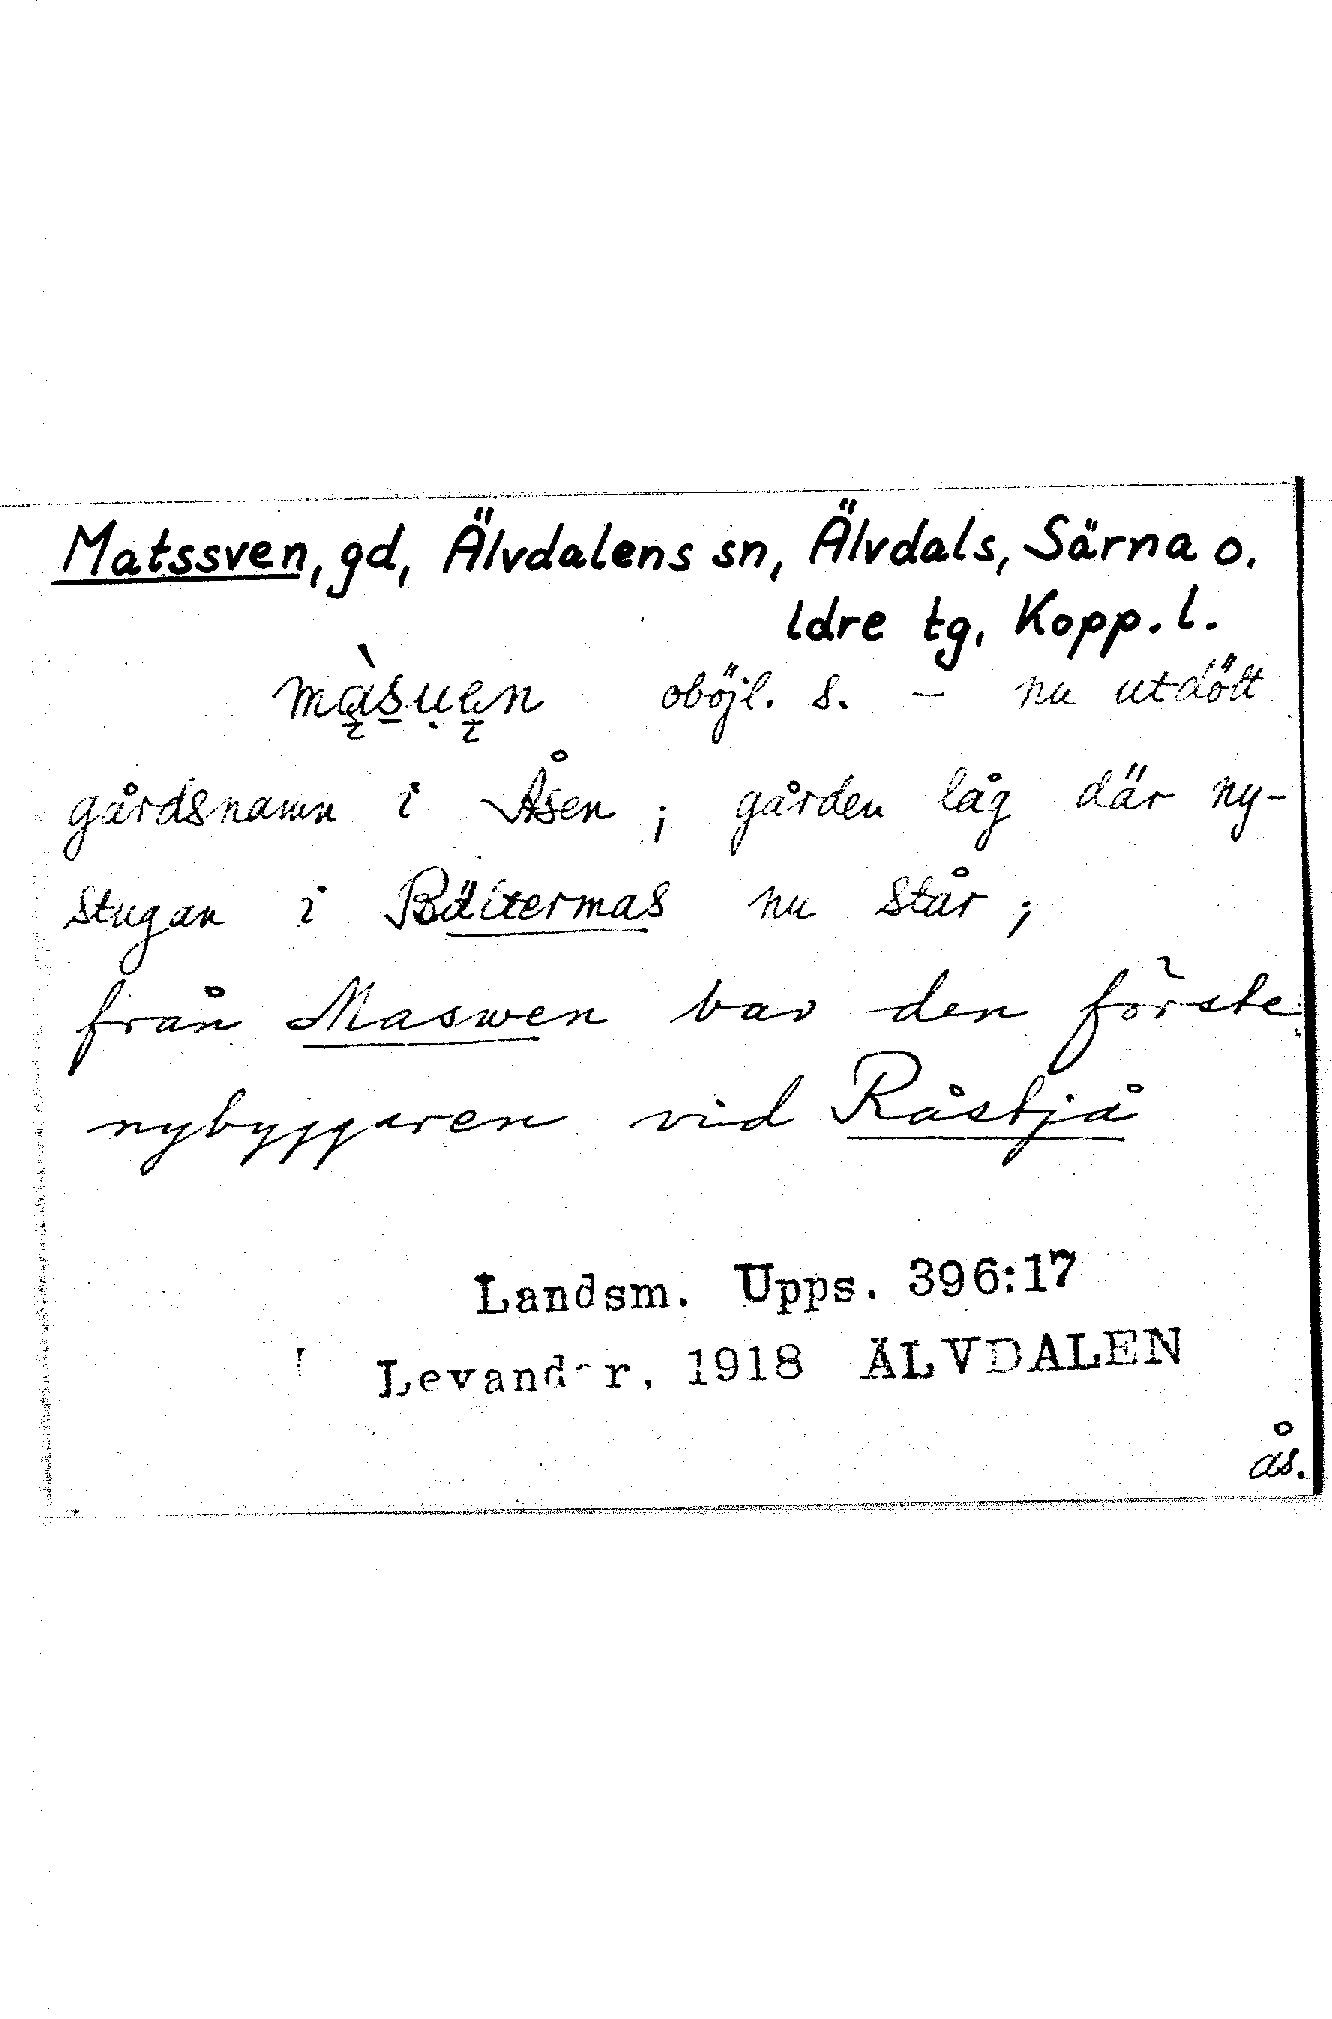 Matssven, gd, Älvdalens sn, Älvdals, Särna o.
Idre tg, Kopp. l.
màsu̯en oböjl. s. — nu utdött
gårdsnamn i Åsen ; gården låg där ny-
stugan i Bäitermas nu står ;
från Maswen var den förste
nybyggaren vid Råstjå
Landsm. Upps. 396:17
Levander, 1918 ÄLVDALEN
ås.